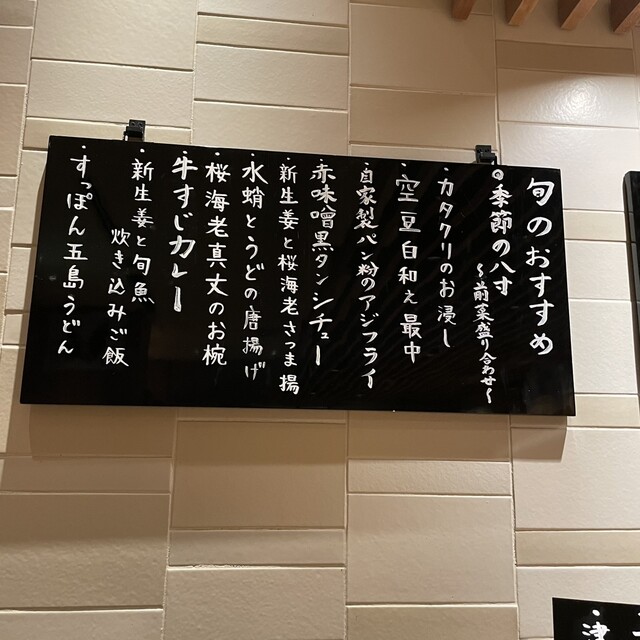 旬のおすすめ
◎季節の八寸
〜前菜盛り合わせ〜
・カタクリのお浸し
・空豆白和え最中
・自家製パン粉のアジフライ
・赤味噌黒タンシチュー
・新生姜と桜海老さつま揚
・水蛸とうどの唐揚げ
・桜海老真丈のお椀
・牛すじカレー
・新生姜と旬魚
炊き込みご飯
・すっぽん五島うどん
・津